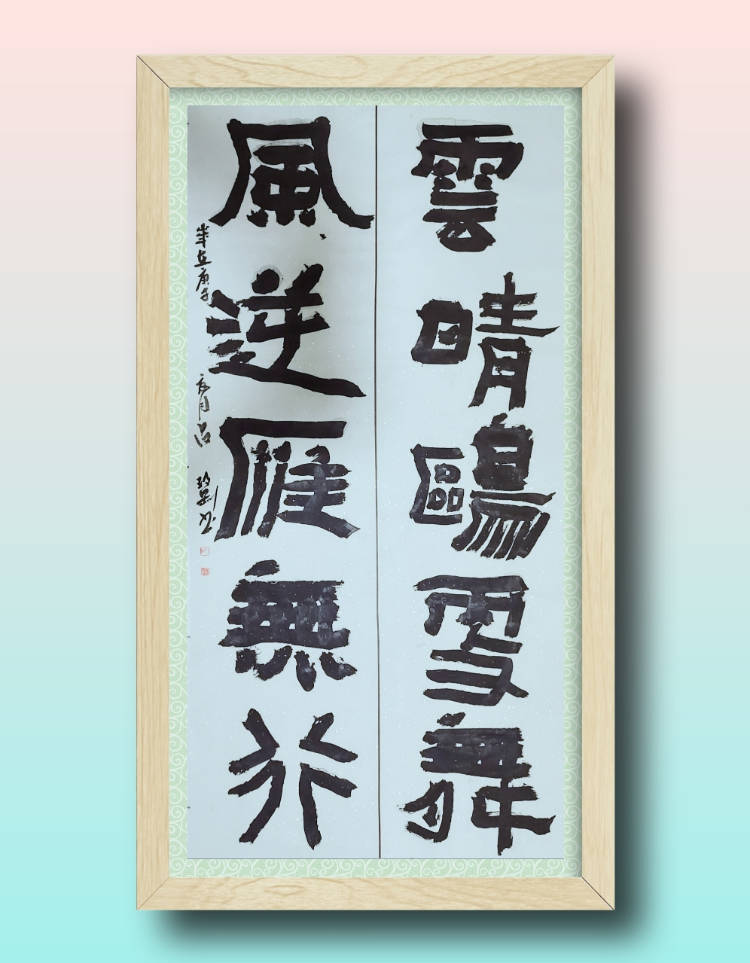 雲晴鷗更舞
風逆雁無行
歲在庚子